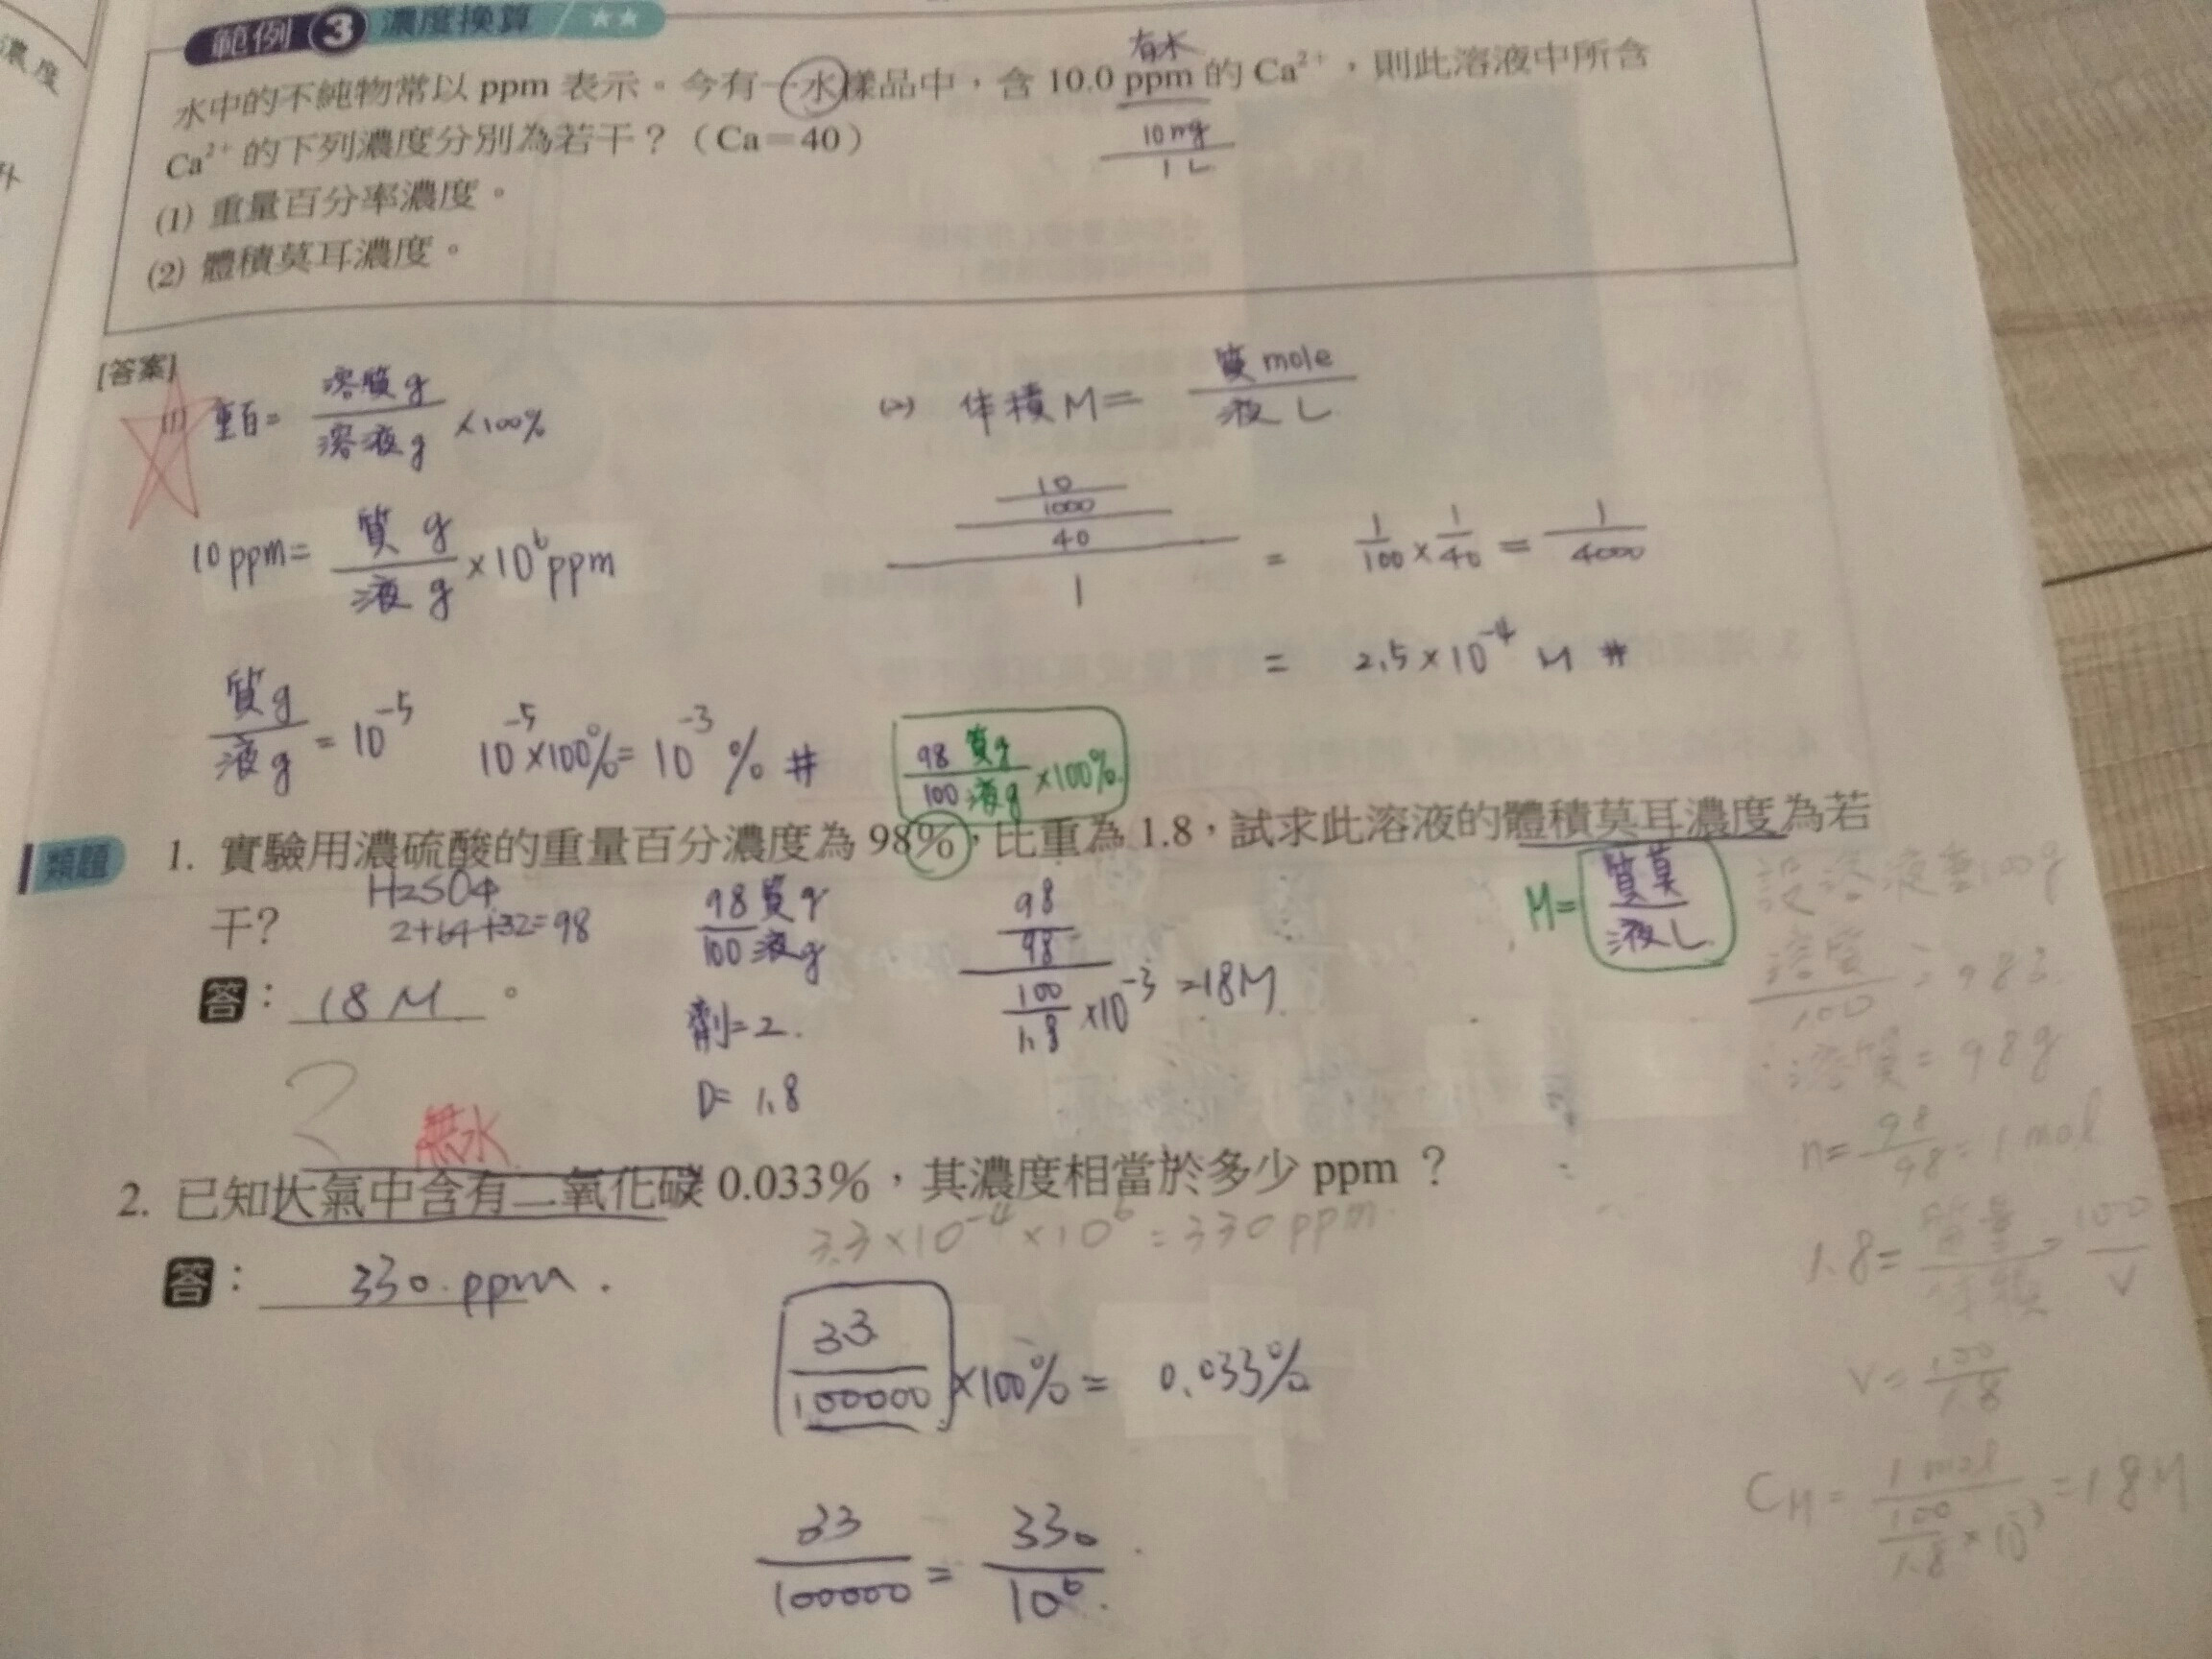 濃度
升
範例 3 濃度換算 ★★
有水
水中的不純物常以 ppm 表示。今有一水樣品中，含 10.0 ppm 的 Ca²⁺，則此溶液中所含
10mg / 1L
Ca²⁺ 的下列濃度分別為若干？（Ca＝40）
(1) 重量百分率濃度。
(2) 體積莫耳濃度。
[答案]
(1) 重百= 溶質g / 溶液g ×100%
(2) 体積M= 質mole / 液L
10ppm= 質g / 液g ×10⁶ppm
10/1000 / 40 / 1 = 1/100 × 1/40 = 1/4000
= 2.5×10⁻⁴ M #
質g / 液g = 10⁻⁵ 10⁻⁵×100%= 10⁻³ % #
98質g / 100液g ×100%
類題 1. 實驗用濃硫酸的重量百分濃度為 98%，比重為 1.8，試求此溶液的體積莫耳濃度為若
干？
H2SO4
2+64+32=98
98質g / 100液g
劑=2.
D= 1.8
98/98 / 100/1.8 ×10⁻³ =18M
M= 質莫 / 液L
設溶液重100g
溶質 / 100 = 98%
溶質=98g
n= 98/98 = 1mol
1.8= 質量/体積 = 100/V
V= 100/1.8
CM= 1mol / 100/1.8 ×10⁻³ =18M
答： 18M 。
2
無水
2. 已知大氣中含有二氧化碳 0.033%，其濃度相當於多少 ppm ？
3.3×10⁻⁴×10⁶=330ppm
答： 330 ppm.
33/100000 ×100%= 0.033%
33/100000 = 330/10⁶.